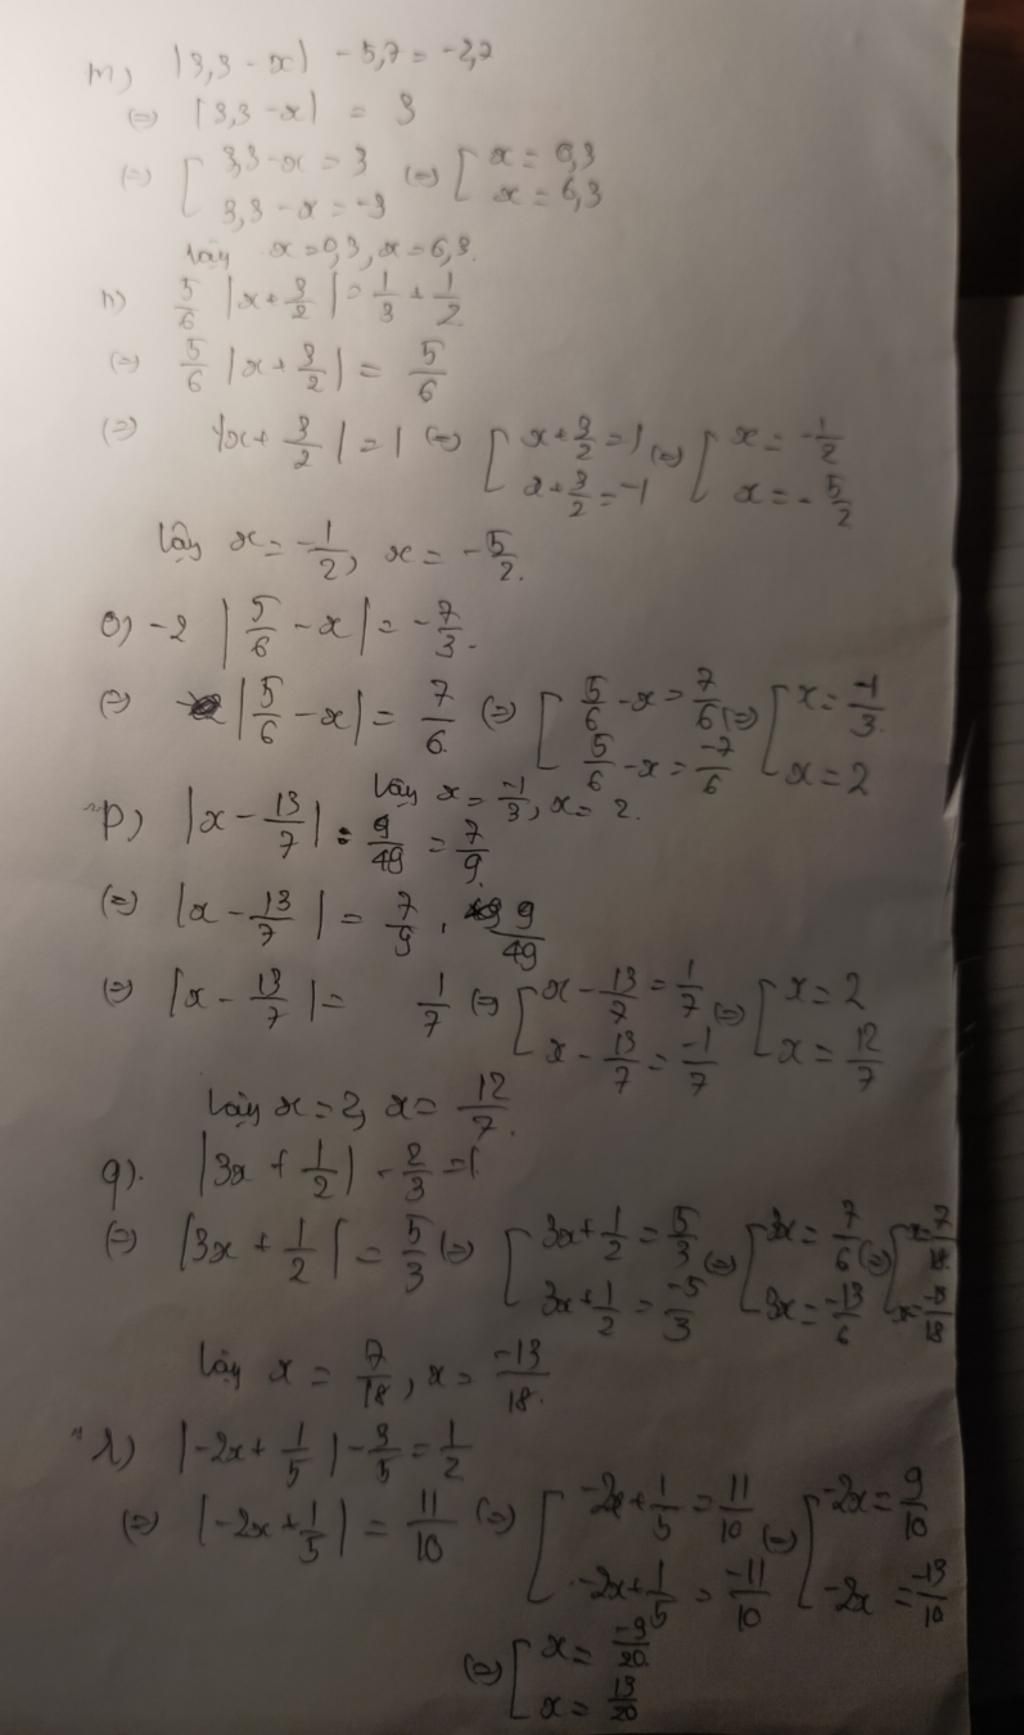 m) |3,3 - x| - 5,7 = -2,7
(=) |3,3 - x| = 3
(=) [ 3,3 - x = 3 (=) [ x = 0,3
3,3 - x = -3 x = 6,3
Vậy x = 0,3, x = 6,3.
n) 5/6 |x + 3/2| = 1/3 + 1/2
(=) 5/6 |x + 3/2| = 5/6
(=) |x + 3/2| = 1 (=) [ x + 3/2 = 1 (=) [ x = -1/2
x + 3/2 = -1 x = -5/2
Vậy x = -1/2, x = -5/2.
o) -2 |5/6 - x| = -7/3.
(=) |5/6 - x| = 7/6 (=) [ 5/6 - x = 7/6 (=) [ x = -1/3
5/6 - x = -7/6 x = 2
Vậy x = -1/3, x = 2.
p) |x - 13/7| : 9/49 = 7/9
(=) |x - 13/7| = 7/9 . 9/49
(=) |x - 13/7| = 1/7 (=) [ x - 13/7 = 1/7 (=) [ x = 2
x - 13/7 = -1/7 x = 12/7
Vậy x = 2, x = 12/7.
q). |3x + 1/2| - 2/3 = 1
(=) |3x + 1/2| = 5/3 (=) [ 3x + 1/2 = 5/3 (=) [ 3x = 7/6 (=) [ x = 7/18
3x + 1/2 = -5/3 3x = -13/6 x = -13/18
Vậy x = 7/18, x = -13/18.
r) |-2x + 1/5| - 3/5 = 1/2
(=) |-2x + 1/5| = 11/10 (=) [ -2x + 1/5 = 11/10 (=) [ -2x = 9/10
-2x + 1/5 = -11/10 -2x = -13/10
(=) [ x = -9/20
x = 13/20